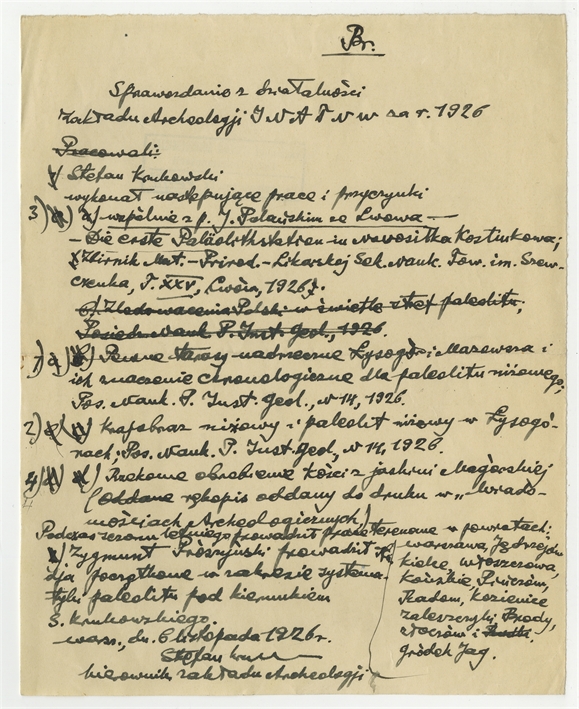 Br.
Sprawozdanie z działalności
Zakładu Archeologji I N A T N W za r. 1926
Pracowali:
Stefan Krukowski
wykonał następujące prace i przyczynki
3) wspólnie z p. J. Polańskim ze Lwowa —
- Die erste Paläolithstation in Novosilka Kostiukowa;
Zbirnik Mat.-Prirod.-Likarskoj Sek. Nauk. Tow. im. Szew-
czenka, T. XXV, Lwów, 1926.
Zlodowacenia Polski w świetle strat. paleolitu,
Posiedz. Nauk. P. Inst. Geol., 1926.
1) Pewne tarasy nadrzeczne Łysogór i Mazowsza i
ich znaczenie chronologiczne dla paleolitu niżowego;
Pos. Nauk. P. Inst. Geol., N 14, 1926.
2) Krajobraz niżowy i paleolit niżowy w Łysogó-
rach; Pos. Nauk. P. Inst. Geol., N 14, 1926.
4) Rzekome obrobienie kości z jaskini Magórskiej
(oddane rękopis oddany do druku w „Wiado-
mościach Archeologicznych")
Podczas sezonu letniego prowadził prace terenowe w powiatach:
warszawa, Jędrzejów
kielce, włoszczowa,
końskie, Pińczów,
Radom, Kozienice
zaleszczyki, Brody,
złoczów i
gródek Jag.
Zygmunt Prószyński prowadził stu-
dja początkowe w zakresie systema-
tyki paleolitu pod kierunkiem
S. Krukowskiego.
warsz., dn. 6 listopada 1926 r.
Stefan
kierownik zakładu Archeologji